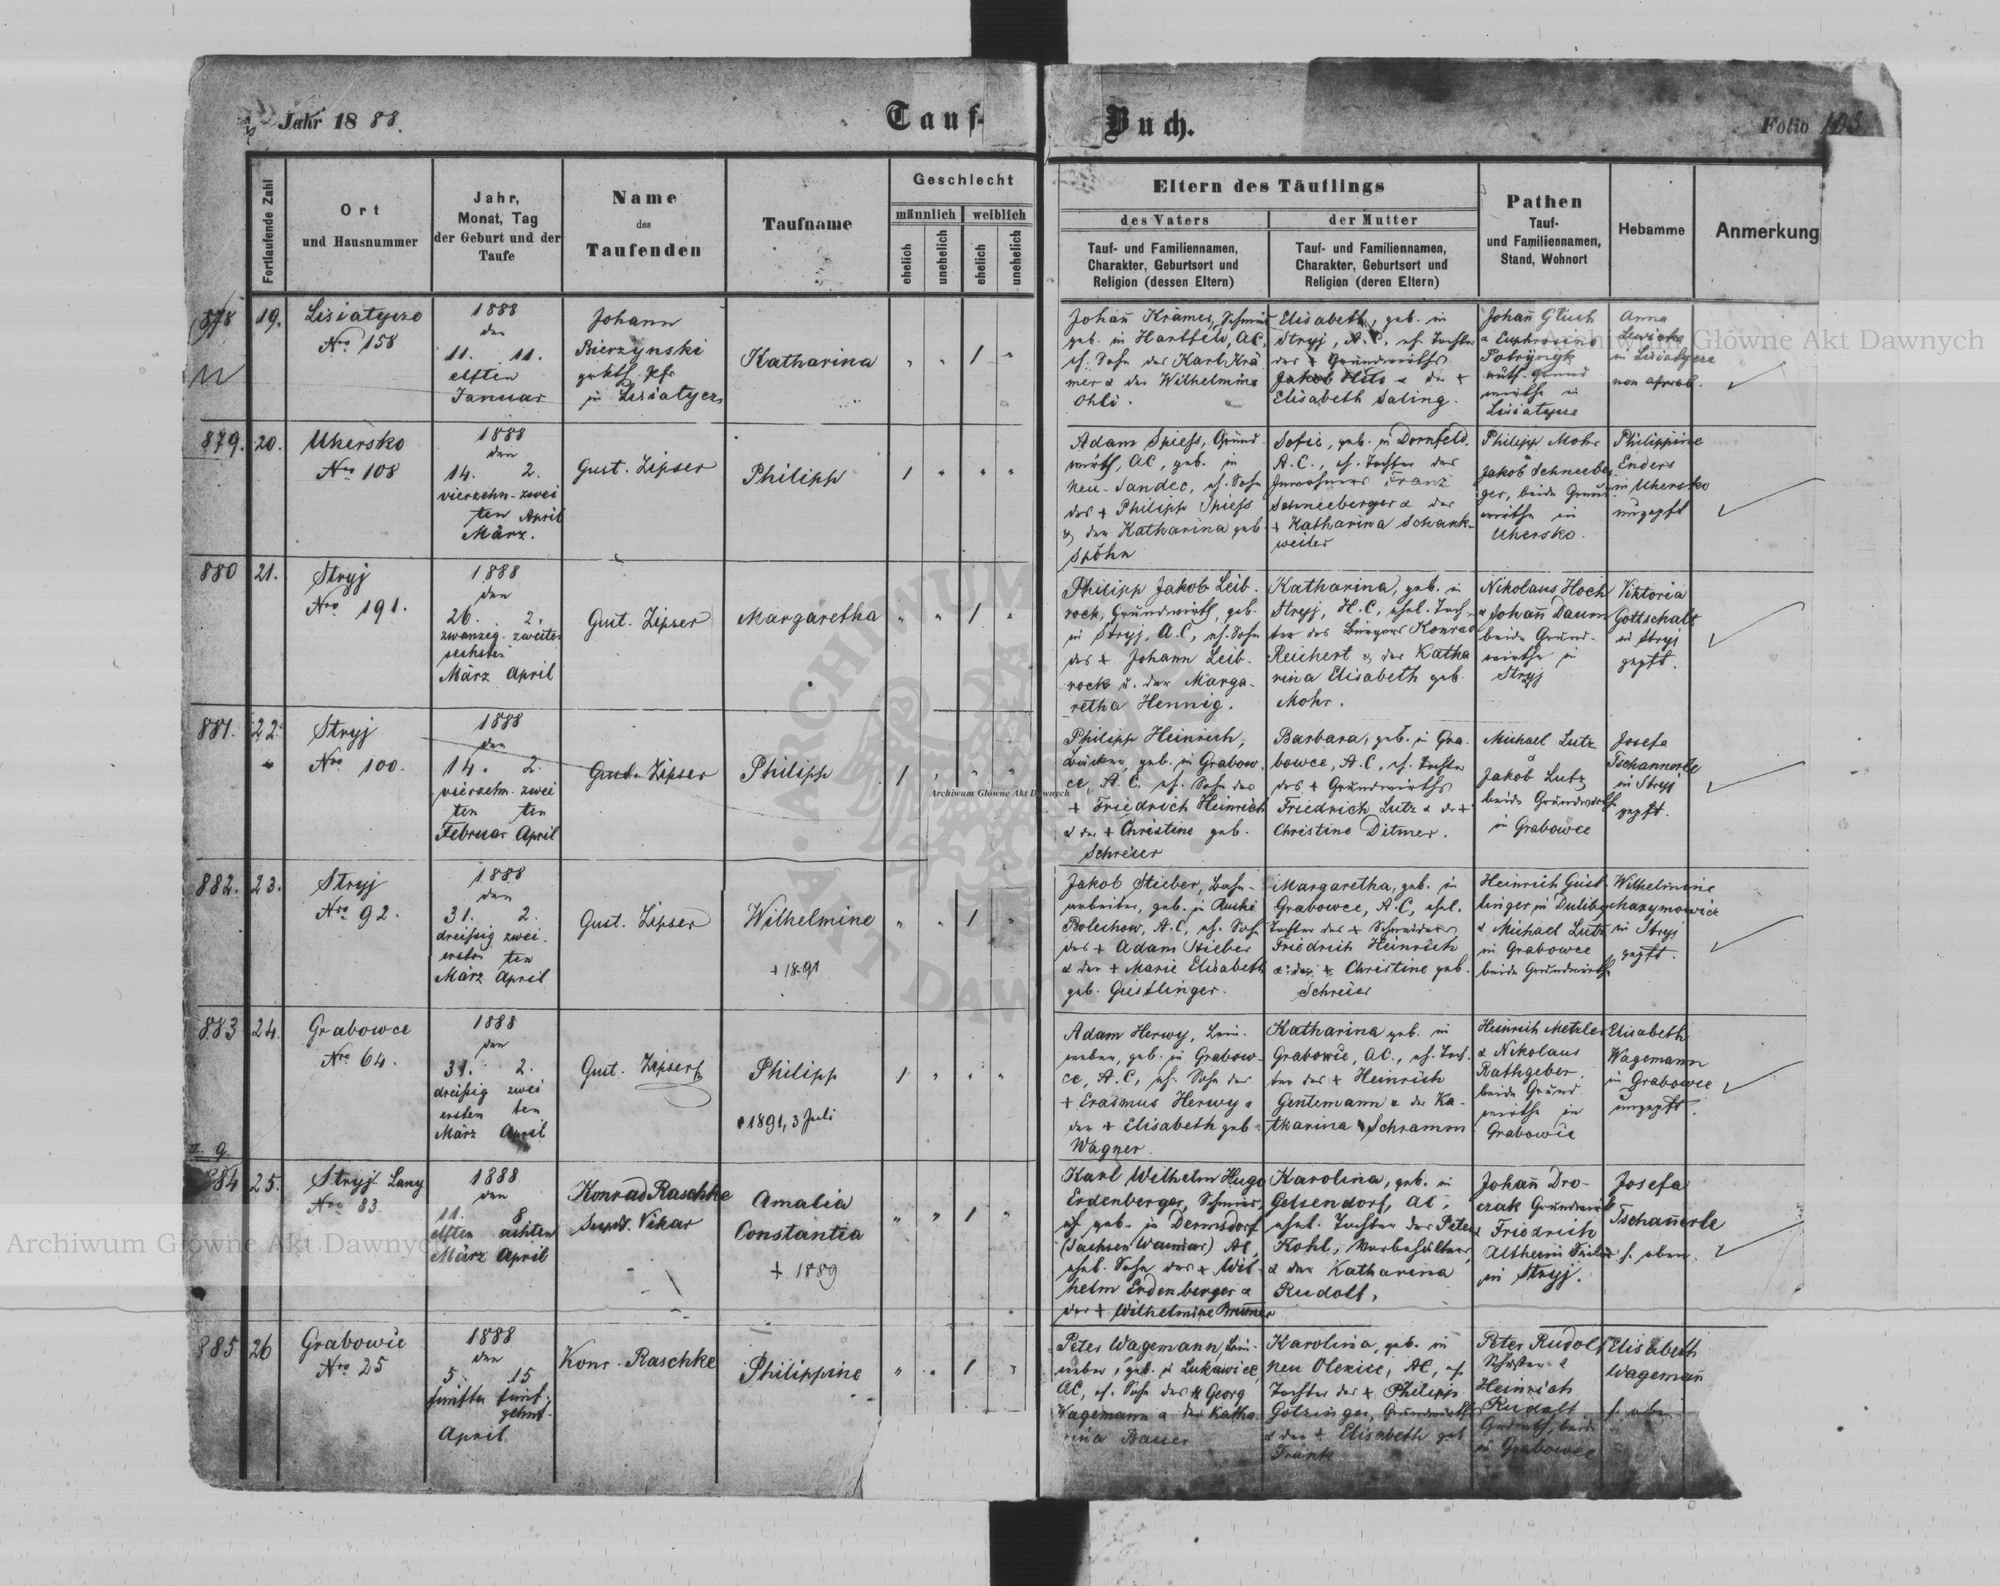 Jahr 1888.
Tauf-
Buch.
Folio 103
Fortlaufende Zahl
Ort
und Hausnummer
Jahr,
Monat, Tag
der Geburt und der
Taufe
Name
des
Taufenden
Taufname
Geschlecht
männlich
weiblich
ehelich
unehelich
ehelich
unehelich
Eltern des Täuflings
des Vaters
der Mutter
Tauf- und Familiennamen,
Charakter, Geburtsort und
Religion (dessen Eltern)
Tauf- und Familiennamen,
Charakter, Geburtsort und
Religion (deren Eltern)
Pathen
Tauf-
und Familiennamen,
Stand, Wohnort
Hebamme
Anmerkung
878
19.
Lisiatycze
Nro 158
1888
den
11. 11.
elften
Januar
Johann
Bierzynski
in Lisiatycze
Katharina
" " 1 "
Johañ Krämer, Schmied
geb. in Hartfeld, AC,
eh. Sohn des Karl Krä
mer & der Wilhelmine
Ohli.
Elisabeth, geb. in
Stryj, A.C., eh. Tochter
des + Grundwirths
Jakob & der +
Elisabeth Saling.
Johañ Gluch
& Euphrosine
in
Lisiatycze
Anna
Lewicka
in Lisiatycze
879.
20.
Uhersko
Nro 108
1888
den
14. 2.
vierzehn- zwei
ten April
März.
Gust. Zipser
Philipp
1 " " "
Adam Spiess, Grund
wirth, AC, geb. in
Neu-Sandec, eh. Sohn
des + Philipp Spiess
& der Katharina geb.
Spöhn
Sofie, geb. in Dornfeld
A.C., eh. Tochter des
Inwohners Franz
Schneeberger & der
+ Katharina Schank-
weiler
Philipp Mohr
&
Jakob Schneeber
ger, beide Grund
wirthe in
Uhersko.
Philippine
Enders
in Uhersko
ungepft
880
21.
Stryj
Nro 191.
1888
den
26. 2.
zwanzig. zweiten
sechsten
März April
Gust. Zipser
Margaretha
" " 1 "
Philipp Jakob Leib-
rock, Grundwirth, geb.
in Stryj, A.C, eh. Sohn
des + Johann Leib-
rock u. der Marga-
retha Hennig.
Katharina, geb. in
Stryj, H.C, ehel. Toch-
ter des Bürgers Konrad
Reichert & der Katha
rina Elisabeth geb.
Mohr.
Nikolaus Hoch
& Johañ Daum
beide Grund-
wirthe in
Stryj
Viktoria
Gottschalk
in Stryj
gepft.
881.
22.
Stryj
Nro 100.
1888
den
14. 2.
vierzehn- zwei
ten ten
Februar April
Gust. Zipser
Philipp
1 " " "
Philipp Heinrich,
Bäcker, geb. in Grabow-
ce, A.C. eh. Sohn des
+ Friedrich Heinrich
& der + Christine geb.
Schreier
Barbara, geb. in Gra-
bowce, A.C, eh. Tochter
des + Grundwirths
Friedrich Lutz & der +
Christine Ditmer.
Michael Lutz
&
Jakob Lutz
beide Grundwirthe
in Grabowce
Josefa
Tschannerle
in Stryj
gepft.
882.
23.
Stryj
Nro 92.
1888
den
31. 2.
dreißig zwei-
ersten ten
März April
Gust. Zipser
Wilhelmine
+ 1891
" " 1 "
Jakob Stieber, Bahn-
arbeiter, geb. in Ruski
Bolechow, A.C, eh. Sohn
des + Adam Stieber
& der + Marie Elisabeth
geb. Geistlinger.
Margaretha, geb. in
Grabowce, A.C, ehel.
Tochter des + Schneiders
Friedrich Heinrich
& der + Christine geb.
Schreier
Heinrich Geist-
linger in Duliby
& Michael Lutz
in Grabowce
beide Grundwirthe
Wilhelmine
in Stryj
gepft.
883
24.
Grabowce
Nro 64.
1888
den
31. 2.
dreißig zwei
ersten ten
März April
Gust. Zipser
Philipp
1891, 3 Juli
1 " " "
Adam Herwy, Lein-
weber, geb. in Grabow-
ce, A.C, eh. Sohn des
+ Erasmus Herwy &
der + Elisabeth geb.
Wagner.
Katharina geb. in
Grabowce, AC., eh. Toch-
ter des + Heinrich
Gentemann & der Ka-
tharina Schramm
Heinrich Metzler
& Nikolaus
Rathgeber,
beide Grund
wirthe in
Grabowce
Elisabeth
Wagemann
in Grabowce
ungepft.
884
25.
Stryj Lany
Nro 83.
1888
den
11. 8
elften achten
März April
Konrad Raschke
Vikar
Amalia
Constantia
+ 1889
" " 1 "
Karl Wilhelm Hugo
Erdenberger,
geb. in Dermsdorf
(Sachsen Weimar) AC,
ehel. Sohn des + Wil-
helm Erdenberger &
der + Wilhelmine Brunner
Karolina, geb. in
Gelsendorf, AC,
ehel. Tochter des Peter
Kohl,
& der Katharina
Rudolf.
Johañ Dro-
czak Grundwirth
& Friedrich
in Stryj.
Josefa
Tschañerle
s. oben.
885
26
Grabowce
Nro 25
1888
den
5. 15
fünften fünf-
zehnt.
April
Konr. Raschke
Philippine
" " 1 "
Peter Wagemann, Lein-
weber, geb. in Lukawice,
AC, eh. Sohn des Georg
Wagemann & der Katha-
rina Bauer
Karolina, geb. in
Neu Olexice, AC, eh.
Tochter des + Philipp
Götzinger, Grundwirths
& der + Elisabeth geb.
Frank
Peter Rudolf
Schuster &
Heinrich
Rudolf
in Grabowce
Elisabeth
Wagemañ
s. oben
Archiwum Główne Akt Dawnych
Archiwum Główne Akt Dawnych
Archiwum Główne Akt Dawnych